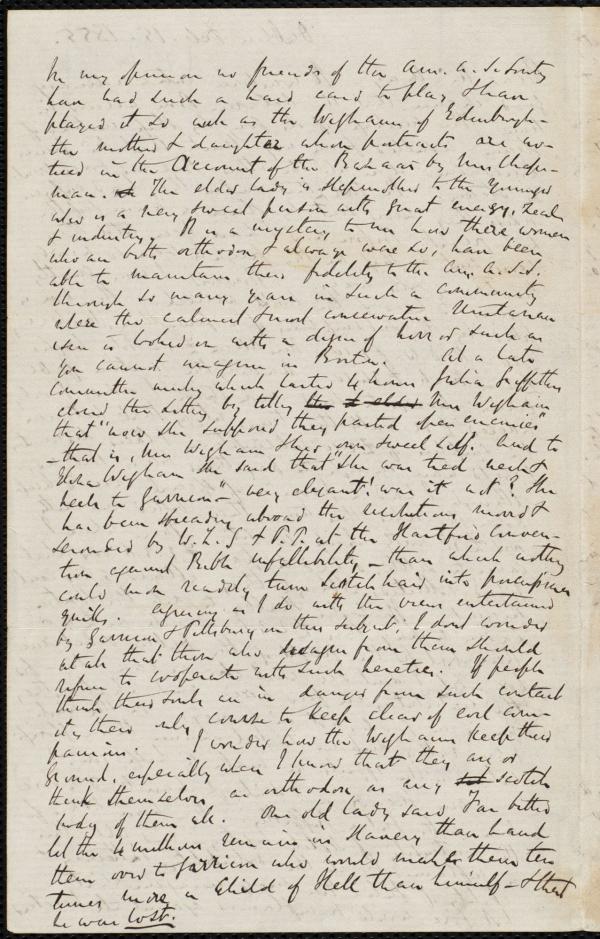 In my opinion no friends of the Am. A. S. Society
have had such a hard card to play & have
played it so well as the Wighams of Edinburgh -
the mother & daughter whose portraits are no-
ticed in the Account of the Bazaar by Mrs Chap-
man. The elder lady is stepmother to the younger
who is a very sweet person with great energy, zeal
& industry. It is a mystery to me how these women
who are both orthodox & always were so, have been
able to maintain their fidelity to the Am. A. S. S.
through so many years in such a community
where the calmest & most conservative Unitarian
ism is looked on with a degree of horror such as
you cannot imagine in Boston. At a late
committee meeting which lasted 4 hours Julia Griffiths
closed the sitting by telling the elder Mrs Wigham
that "now she supposed they parted open enemies"
- that is, Mrs Wigham & her own sweet self. And to
Eliza Wigham she said that "she was tied neck &
heels to Garrison" - very elegant! was it not? She
has been spreading abroad the resolutions moved &
seconded by W. L. G & P. P. at the Hartford Conven-
tion against Bible infallibility - than which nothing
could more readily turn Scotch hair into porcupines
quills. Agreeing as I do with the views entertained
by Garrison & Pillsbury on this subject, I don't wonder
at all that those who disagree from them should
refuse to cooperate with such heretics. If people
think their souls are in danger from such contact
it is their only course to keep clear of evil com-
panions. I wonder how the Wighams keep their
ground, especially when I know that they are or
think themselves as orthodox as any Scotch
body of them all. One old lady said "Far better
let the 4 millions remain in Slavery than hand
them over to Garrison who would make them ten
times more a Child of Hell than himself - & that
he was lost.